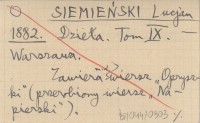 SIEMIEŃSKI Lucjan
1882. Dzieła. Tom IX.
Warszawa.
Zawiera wiersz „Oprysz-
ki" (przerobiony wiersz „Na-
pierski").